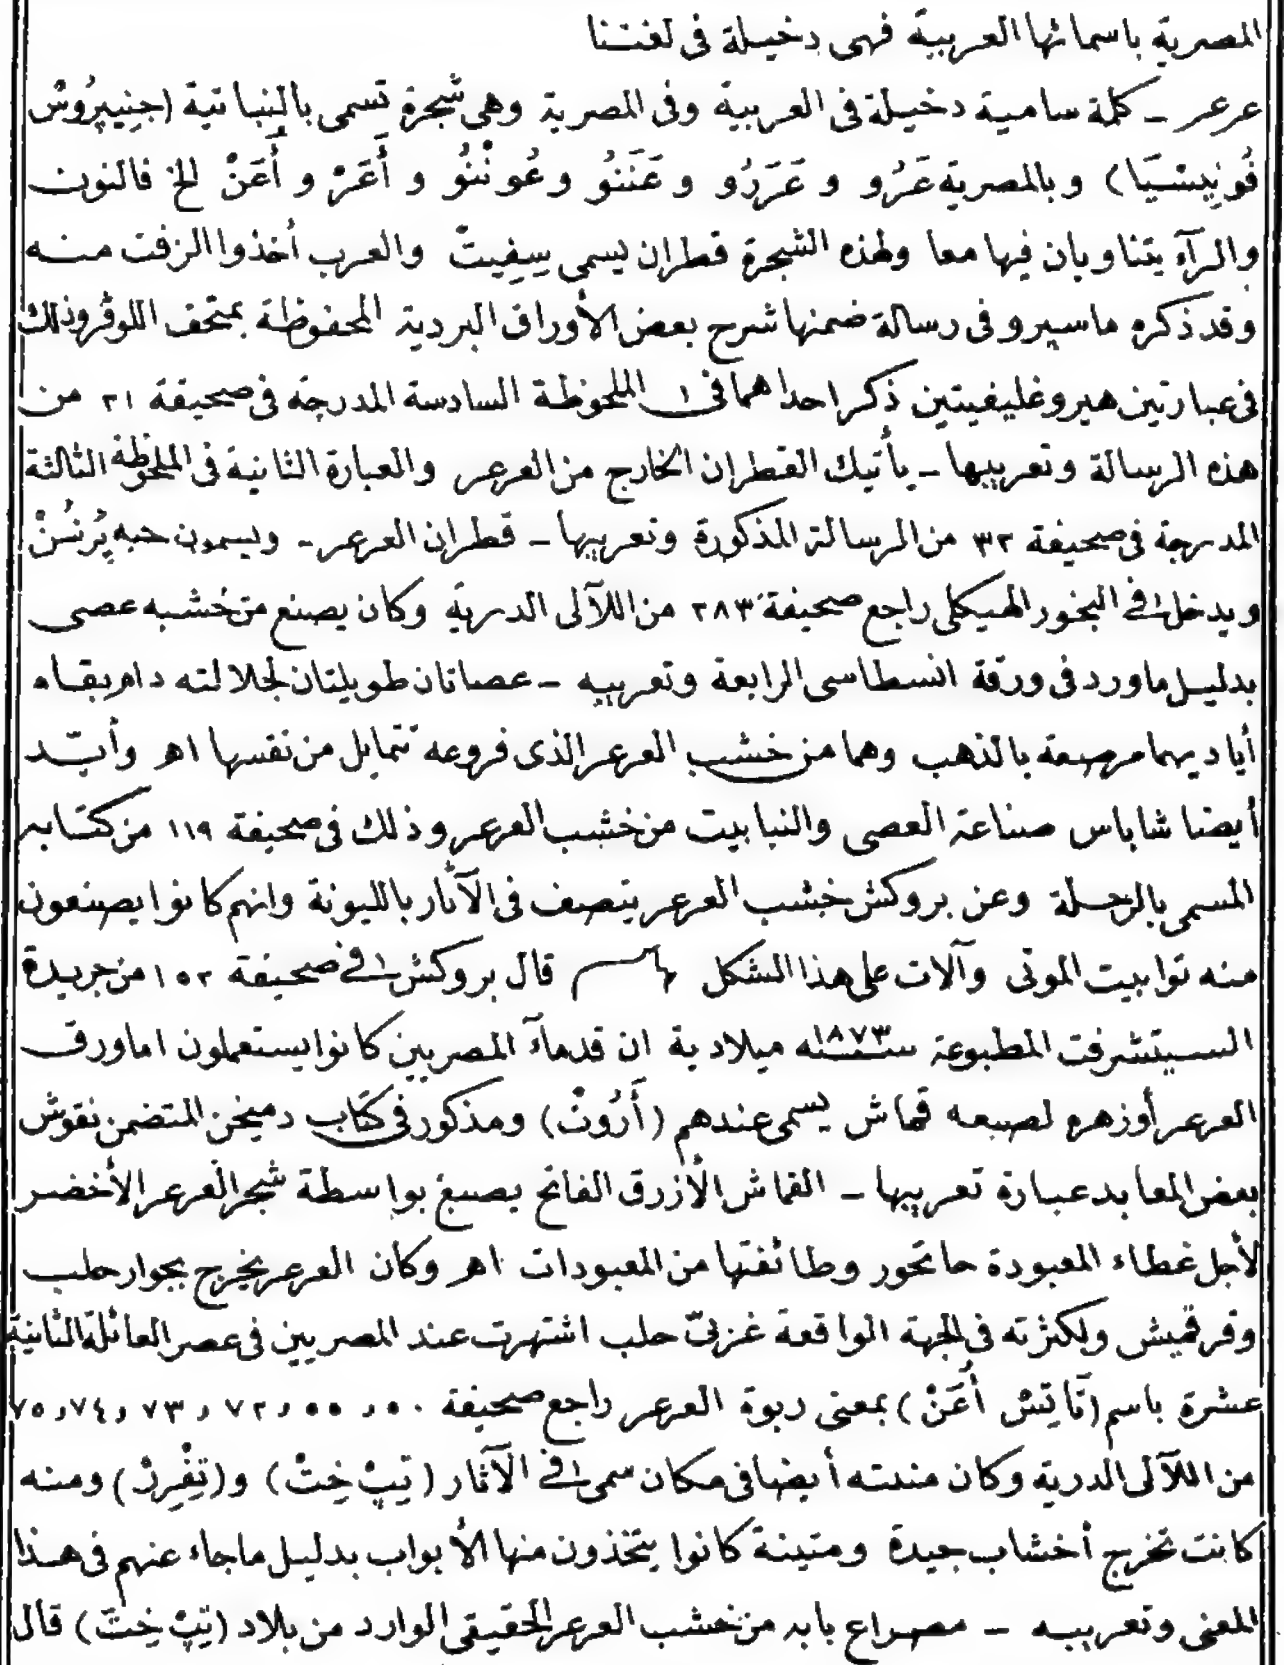 المصرية باسمائها العربية فهى دخيلة فى لغتنا
عرعر ـ كلمة سامية دخيلة فى العربية وفى المصرية وهى شجرة تسمى بالنباتية (جِنِيپرُوسْ
فُونِيِسْيَا) وبالمصرية عَرُو و عَرَرُو و عَنَنُو و عُونْنُو و أَعَرْ و أَعَنْ الخ فالنون
والرآء يتناوبان فيها معا ولهذه الشجرة قطران يسمى سِفِيتْ والعرب أخذوا الزفت منه
وقد ذكره ماسپرو فى رسالة ضمنها شرح بعض الأوراق البردية المحفوظة بمتحف اللوڤر وذلك
فى عبارتين هيروغليفيتين ذكر احداهما فى الملحوظة السادسة المدرجة فى صحيفة ٢١ من
هذه الرسالة وتعريبها ـ يأتيك القطران الخارج من العرعر والعبارة الثانية فى الملحوظة الثالثة
المدرجة فى صحيفة ٣٢ من الرسالة المذكورة وتعريبها ـ قطران العرعر ـ ويسمون حبه پُرنُسُنْ
ويدخل فى البخور الهيكلى راجع صحيفة ٢٨٣ من اللآلى الدرية وكان يصنع من خشبه عصى
بدليل ماورد فى ورقة انسطاسى الرابعة وتعريبه ـ عصاتان طويلتان لجلالته دام بقاه
أياديهما مرصعة بالذهب وهما من خشب العرعر الذى فروعه تتمايل من نفسها اهـ وأيّد
أيضا شاباس صناعة العصى والنبابيت من خشب العرعر وذلك فى صحيفة ١١٩ من كتابه
المسمى بالرحلة وعن بروكش خشب العرعر يتصف فى الآثار بالليونة وانهم كانوا يصنعون
منه توابيت الموتى وآلات على هذا الشكل قال بروكش فى صحيفة ١٥٢ من جريدة
السيتشرفت المطبوعة سنة ١٨٧٣ ميلادية ان قدمآء المصريين كانوا يستعملون اما ورق
العرعر أو زهره لصبعه قماش يسمى عندهم (أَرُوتْ) ومذكور فى كتاب دميخن المتضمن نقوش
بعض المعابد عبارة تعريبها ـ القماش الأزرق الفاتح يصبغ بواسطة شجر العرعر الأخضر
لأجل غطاء المعبودة حاتحور وطائفتها من المعبودات اهـ وكان العرعر يخرج بجوار حلب
وقرقميش ولكثرته فى الجهة الواقعة غربىّ حلب اشتهرت عند المصريين فى عصر العائلة الثانية
عشرة باسم (تَاتِسْ أَعَنْ) بمعنى ربوة العرعر راجع صحيفة ٥٠، ٥٥، ٧٢، ٧٣، ٧٤، ٧٥
من اللآلى الدرية وكان منبته أيضا فى مكان سمى فى الآثار (تِپْ خِتْ) و(تِفْرِرْ) ومنه
كانت تخرج أخشاب جيدة ومتينة كانوا يتخذون منها الأبواب بدليل ماجاء عنهم فى هذا
المعنى وتعريبه ـ مصراع بابه من خشب العرعر الحقيقى الوارد من بلاد (تِپْ خِتْ) قال